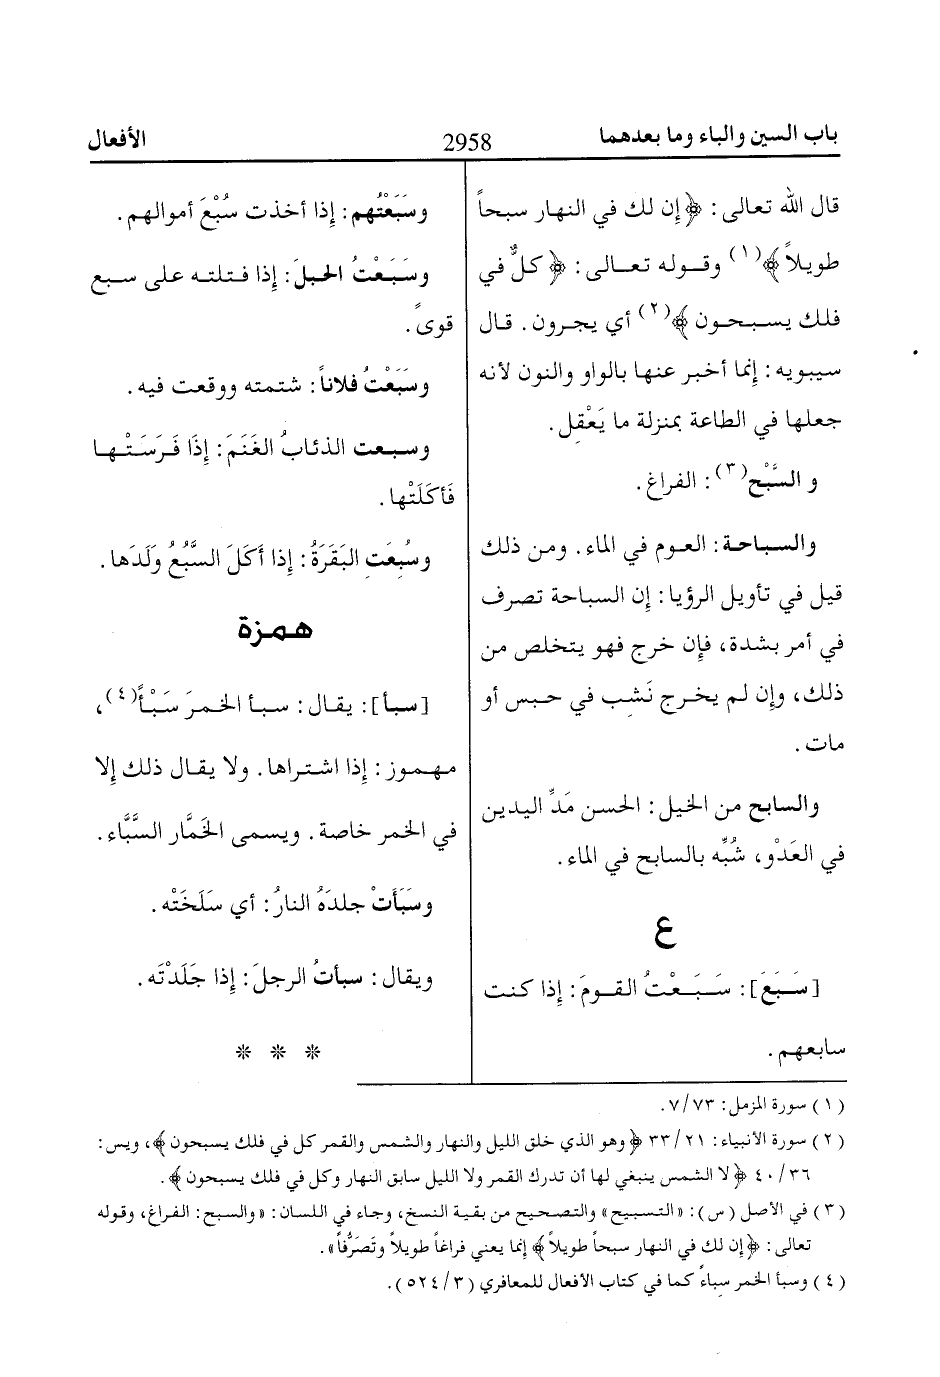 باب السين والباء وما بعدهما
2958
الأفعال
قال الله تعالى: ﴿إن لك في النهار سبحاً
طويلاً﴾(١) وقوله تعالى: ﴿كلٌّ في
فلك يسبحون﴾(٢) أي يجرون. قال
سيبويه: إنما أخبر عنها بالواو والنون لأنه
جعلها في الطاعة بمنزلة ما يَعْقِل.
و السَّبْح(٣): الفراغ.
والسباحة: العوم في الماء. ومن ذلك
قيل في تأويل الرؤيا: إن السباحة تصرف
في أمر بشدة، فإن خرج فهو يتخلص من
ذلك، وإن لم يخرج نَشِب في حبس أو
مات.
والسابح من الخيل: الحسن مَدِّ اليدين
في العَدْو، شُبِّه بالسابح في الماء.
ع
[سَبَعَ]: سَبَعْتُ القومَ: إذا كنت
سابعهم.
وسَبَعْتُهم: إذا أخذت سُبْعَ أموالهم.
وسَبَعْتُ الحبلَ: إذا فتلته على سبع
قوىً.
وسَبَعْتُ فلاناً: شتمته ووقعت فيه.
وسبعت الذئابُ الغَنَمَ: إذَا فَرَسَتْها
فَأكَلَتْها.
وسُبِعَتِ البَقَرَةُ: إذا أكَلَ السَّبُعُ ولَدَها.
همزة
[سبأ]: يقال: سبأ الخمرَ سَبْأً(٤)،
مهموز: إذا اشتراها. ولا يقال ذلك إلا
في الخمر خاصة. ويسمى الخَمَّار السَّبَّاء.
وسَبَأتْ جلدَهُ النارُ: أي سَلَخَتْه.
ويقال: سبأتُ الرجلَ: إذا جَلَدْتَه.
* * *
(١) سورة المزمل: ٧/٧٣.
(٢) سورة الأنبياء: ٣٣/٢١ ﴿وهو الذي خلق الليل والنهار والشمس والقمر كل في فلك يسبحون﴾، ويس:
٤٠/٣٦ ﴿لا الشمس ينبغي لها أن تدرك القمر ولا الليل سابق النهار وكل في فلك يسبحون﴾.
(٣) في الأصل (س): «التسبيح» والتصحيح من بقية النسخ، وجاء في اللسان: «والسبح: الفراغ، وقوله
تعالى: ﴿إن لك في النهار سبحاً طويلاً﴾ إنما يعني فراغاً طويلاً وتَصَرُّفاً».
(٤) وسبأ الخمر سباءً كما في كتاب الأفعال للمعافري (٥٢٤/٣).